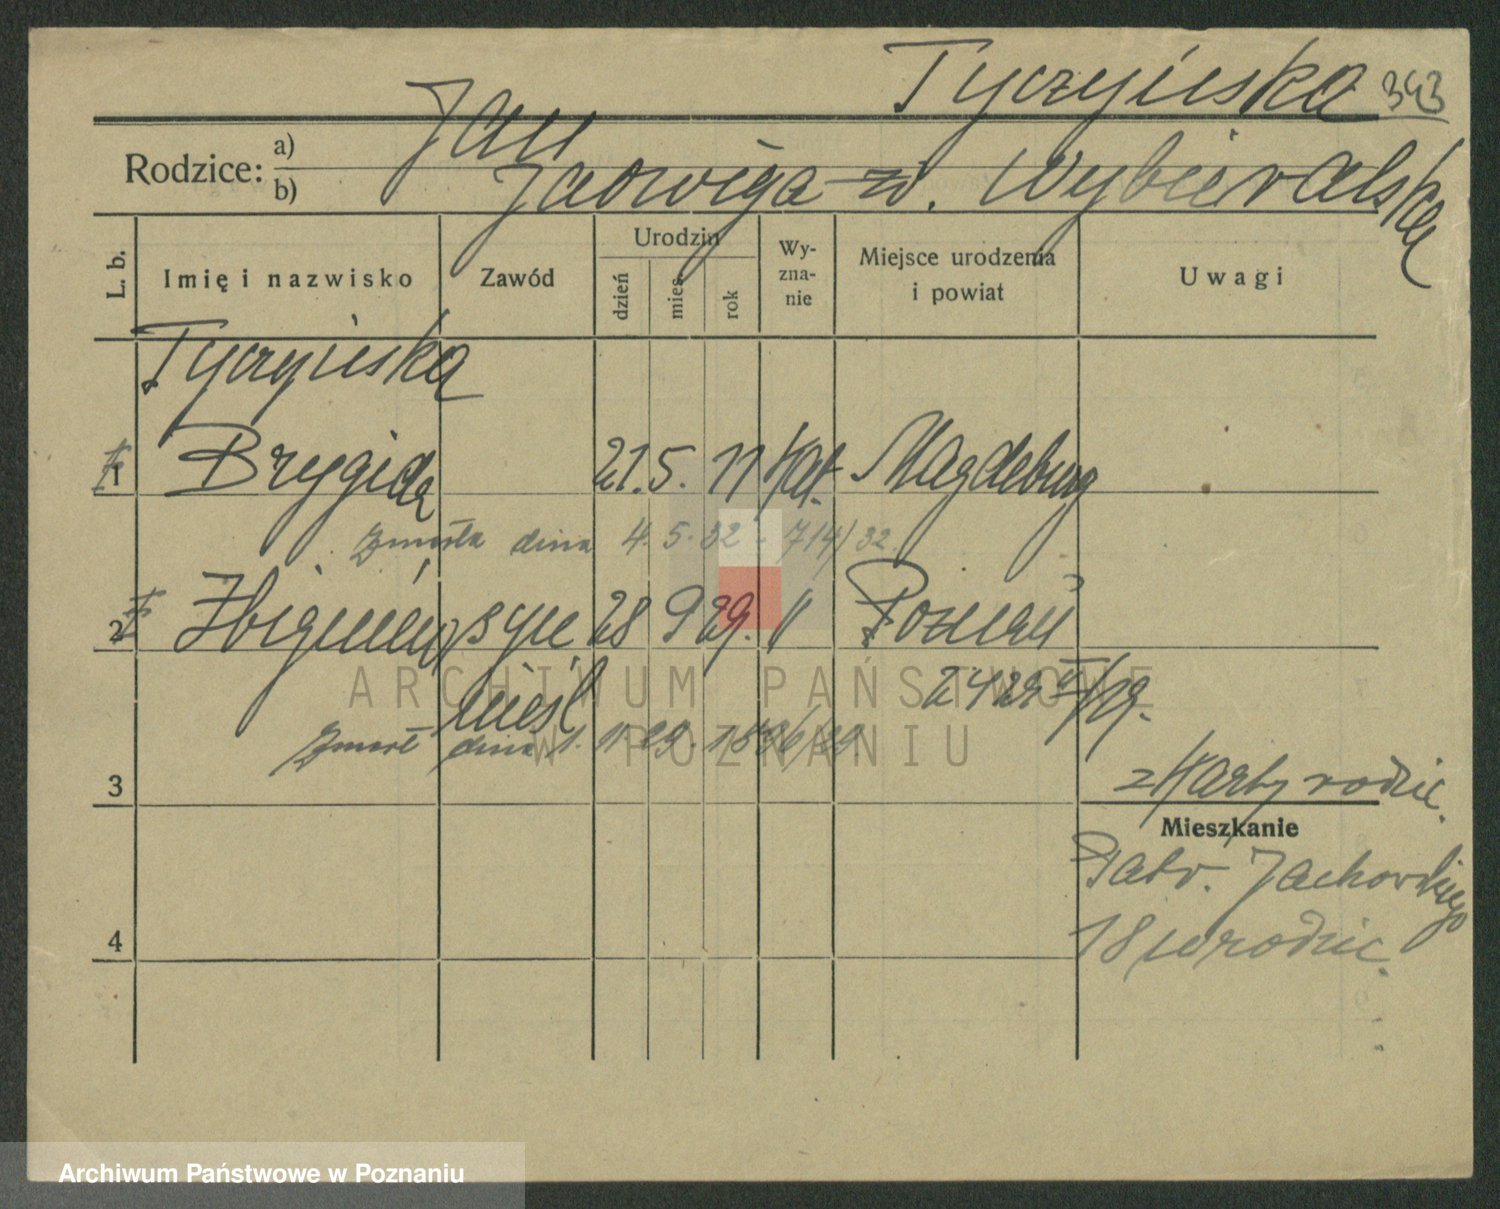 Tyczyińska 343
Rodzice: a) Jan
b) Jadwiga z d. Wybieralska
L. b. Imię i nazwisko Zawód Urodzin dzień mies. rok Wy-zna-nie Miejsce urodzenia i powiat Uwagi
Tyczyińska
1 Brygida 21. 5. 11 kat. Magdeburg
Zmarła dnia 4. 5. 32 - 714/32
2 Zbigniew syn 28 9 29. " Poznań
nieśl 2429 /29.
Zmarł dnia 1. 11. 29.
3 z karty rodzic.
Mieszkanie
Patr. Jackowskiego
4 18 u rodzic.
ARCHIWUM PAŃSTWOWE
W POZNANIU
Archiwum Państwowe w Poznaniu